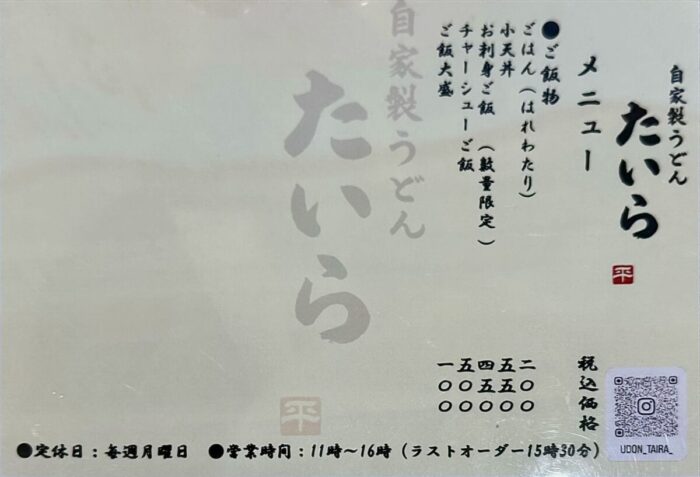 自家製うどん
たいら
平
メニュー
税込価格
●ご飯物
ごはん（はれわたり） 二〇〇
小天丼 五五〇
お刺身ご飯 （数量限定） 四五〇
チャーシューご飯 五〇〇
ご飯大盛 一〇〇
自家製うどん
たいら
平
UDON_TAIRA_
●定休日：毎週月曜日 ●営業時間：11時〜16時（ラストオーダー15時30分）